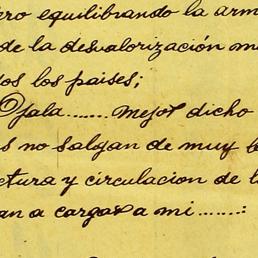 ero equilibrando la arm
de la desvalorización m
os los paises;
Ojala....... mejor dicho
s no salgan de muy l
ctura y circulacion de l
an a cargar a mi.......: